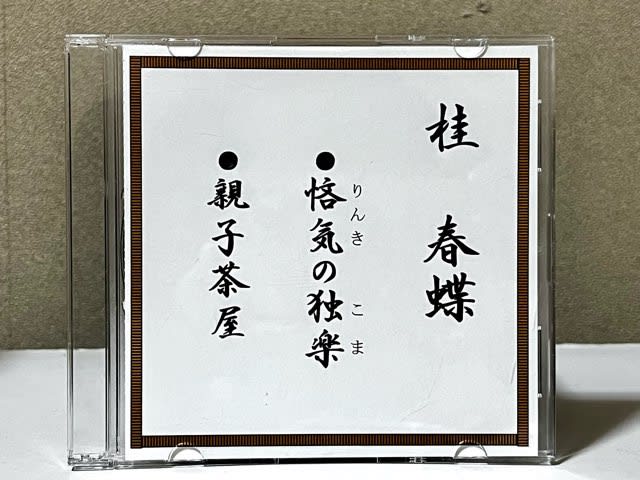 桂 春蝶
りんき こま
●悋気の独楽
●親子茶屋